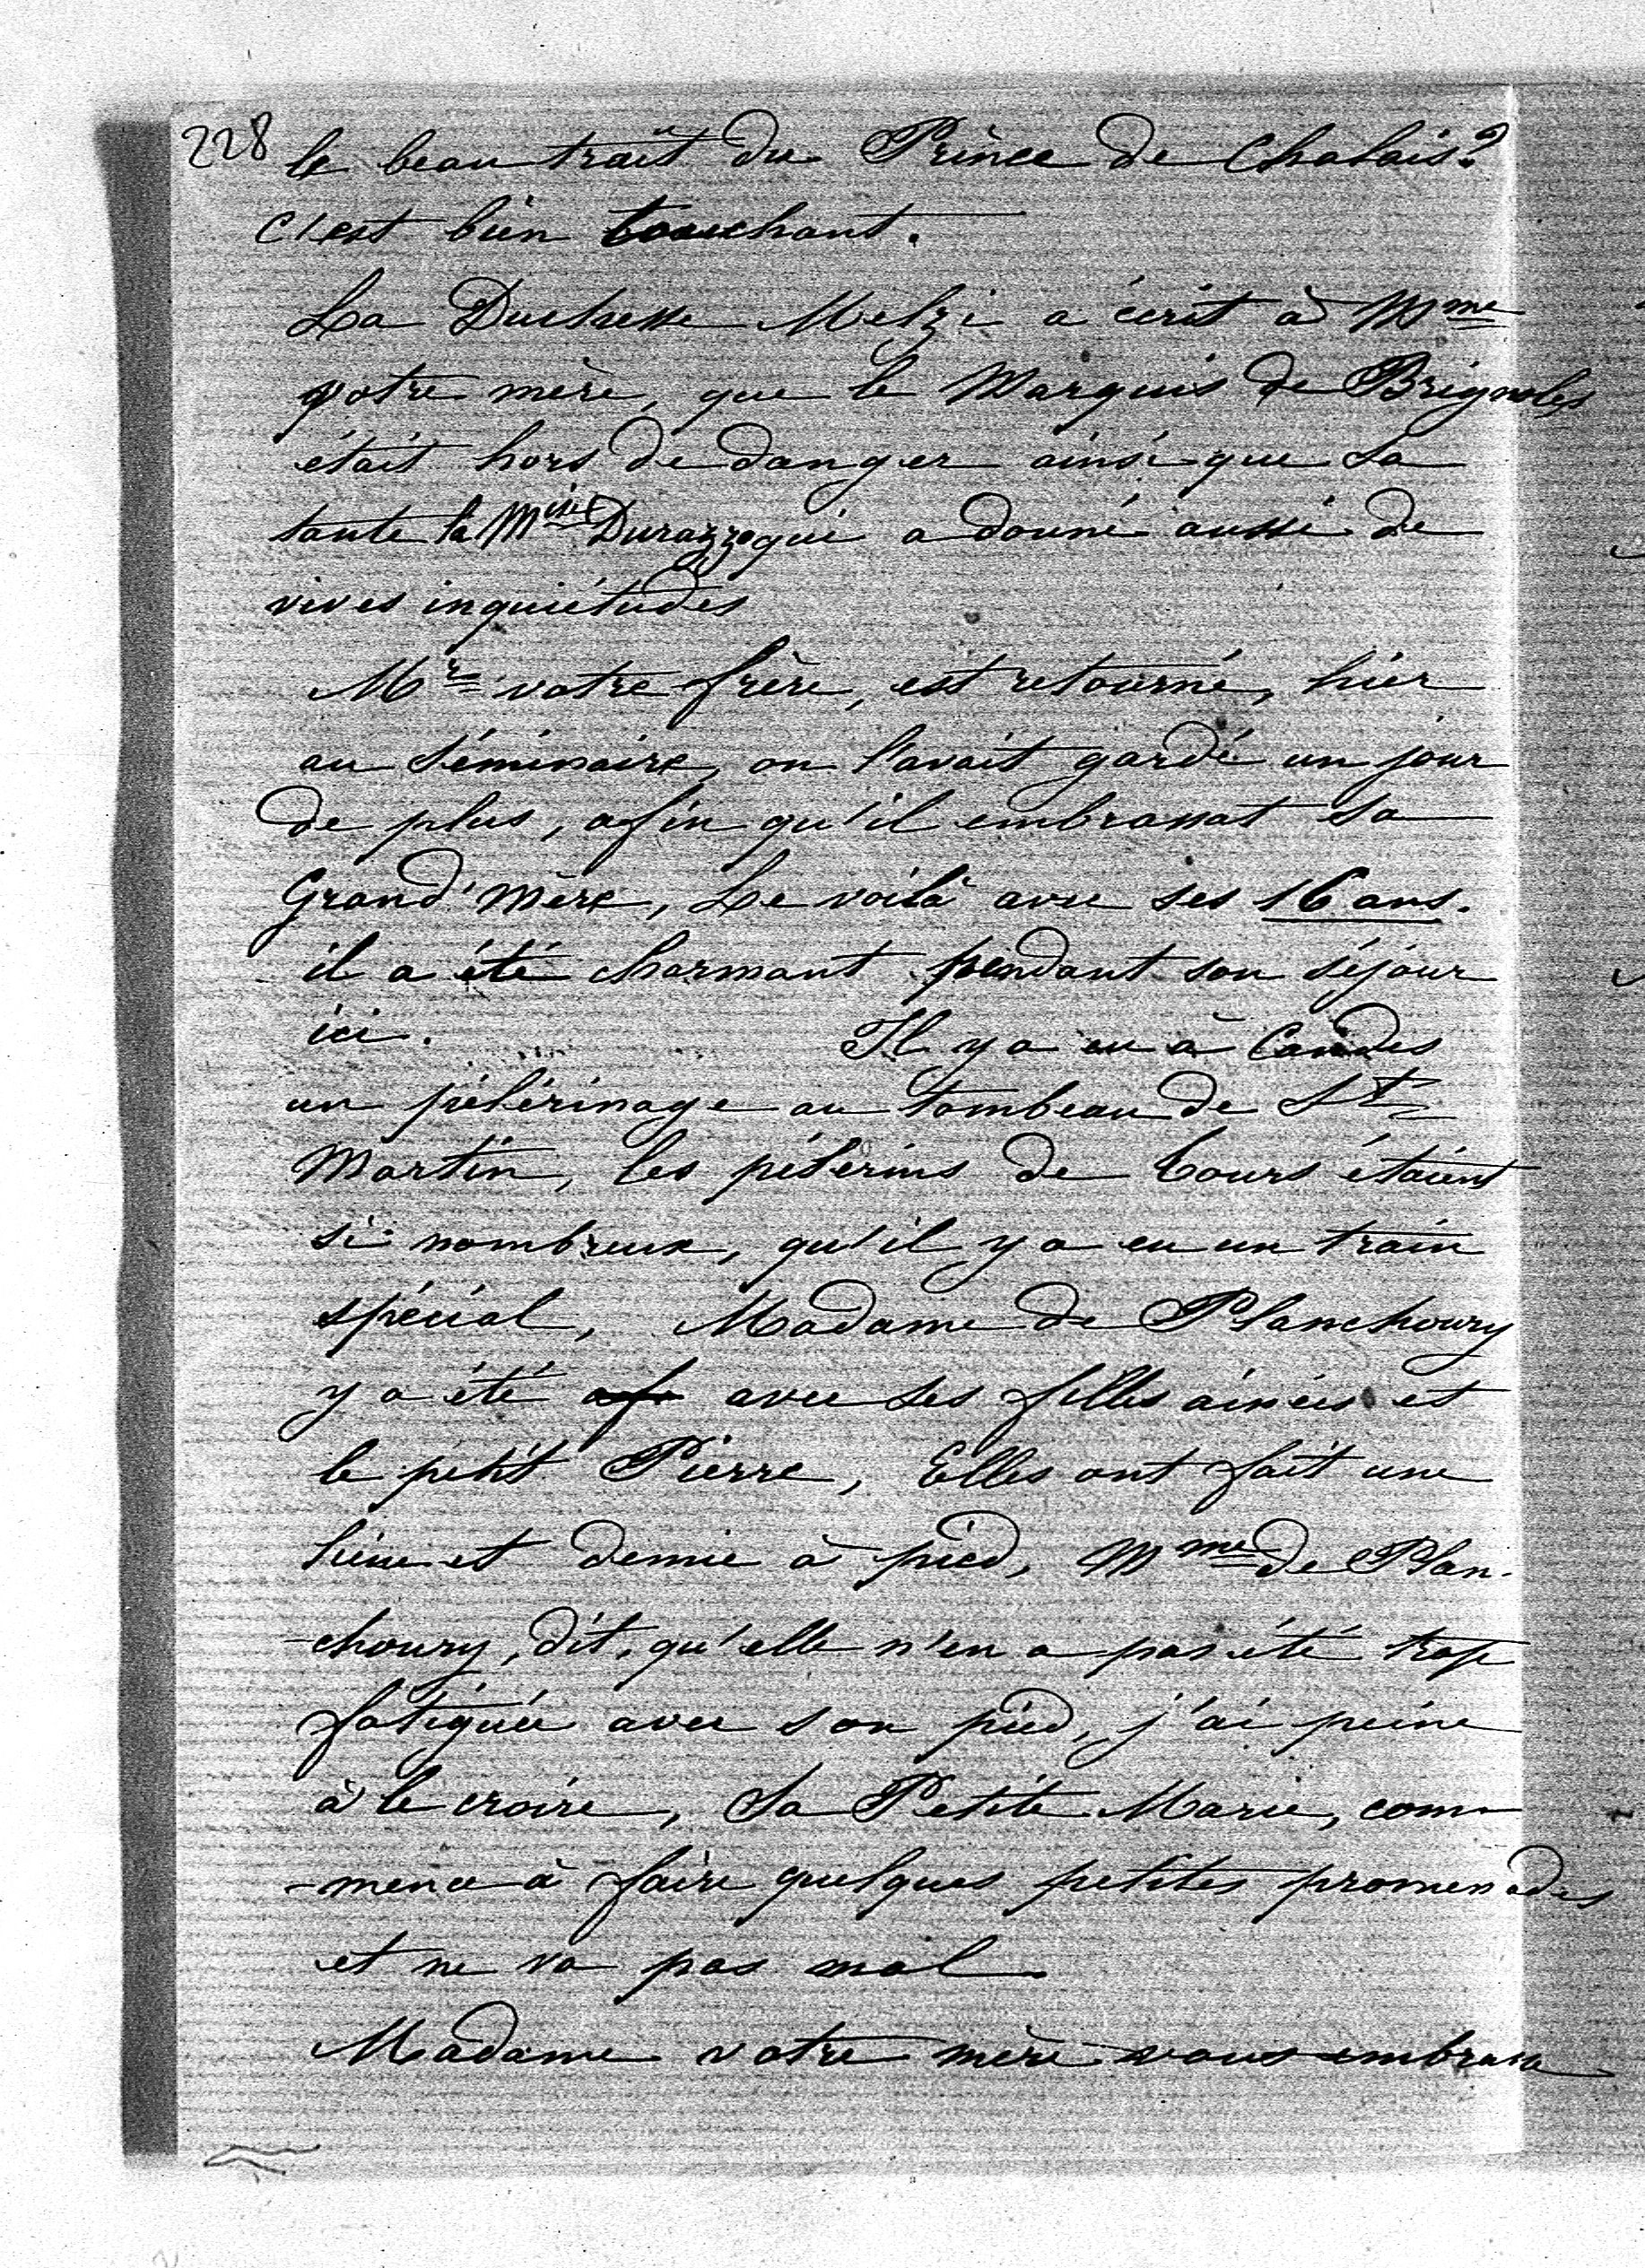 228
le beau trait du Prince de Chalais?
c'est bien touchant.
La Duchesse Melzi a écrit à Mme
votre mère, que le Marquis de Brignoles
était hors de danger ainsi que sa
tante la Mise Durazzo qui a donné aussi de
vives inquiétudes
Mr votre frère, est retourné, hier
au Séminaire, on l'avait gardé un jour
de plus, afin qu'il embrassat sa
Grand'mère, Le voilà avec ses 16 ans.
il a été charmant pendant son séjour
ici. Il y a eu à Candes
un pélérinage au tombeau de St
Martin, les pélerins de Tours étaient
si nombreux, qu'il y a eu un train
spécial, Madame de Planchoury
y a été avec ses filles ainées et
le petit Pierre, Elles ont fait une
lieue et demie à pied, Mme de Plan-
-choury, dit, qu'elle n'en a pas été trop
fatiguée avec son pied, j'ai peine
à le croire, Sa Petite Marie, com-
-mence à faire quelques petites promenades
et ne va pas mal
Madame votre mère vous embrasse